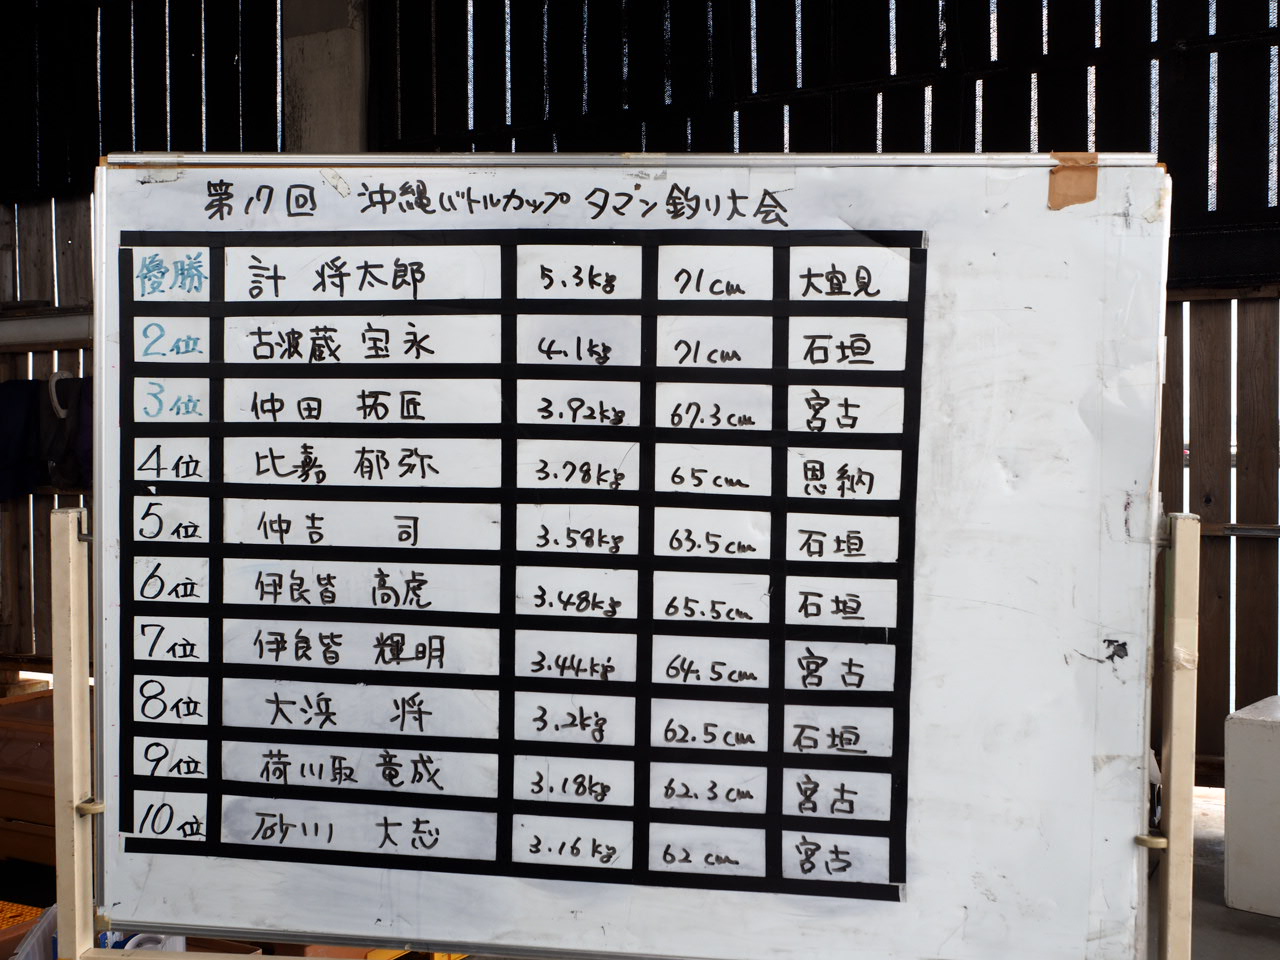 第17回 沖縄バトルカップ タマン釣り大会
優勝 計 将太郎 5.3kg 71cm 大宜見
2位 古波蔵 宝永 4.1kg 71cm 石垣
3位 仲田 拓匠 3.92kg 67.3cm 宮古
4位 比嘉 郁弥 3.78kg 65cm 恩納
5位 仲吉 司 3.58kg 63.5cm 石垣
6位 伊良皆 高虎 3.48kg 65.5cm 石垣
7位 伊良皆 輝明 3.44kg 64.5cm 宮古
8位 大浜 将 3.2kg 62.5cm 石垣
9位 荷川取 竜成 3.18kg 62.3cm 宮古
10位 砂川 大志 3.16kg 62cm 宮古